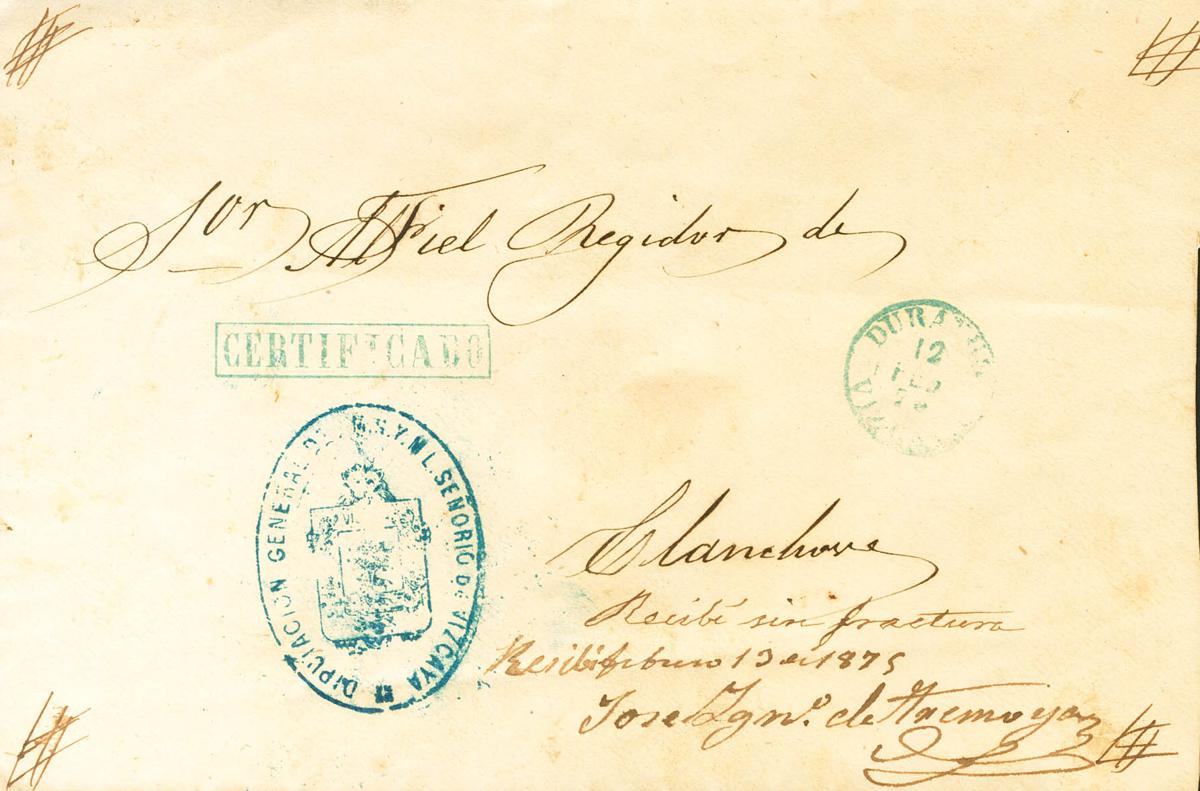 Sor Fiel Regidor de
CERTIFICADO
DURANGO
12
FEB
VIZCAYA
DIPUTACION GENERAL DEL M.N.Y.M.L. SEÑORIO DE VIZCAYA
Elanchove
Recibí sin fractura
Recibí febrero 13 de 1875
Jose Ygn.º de